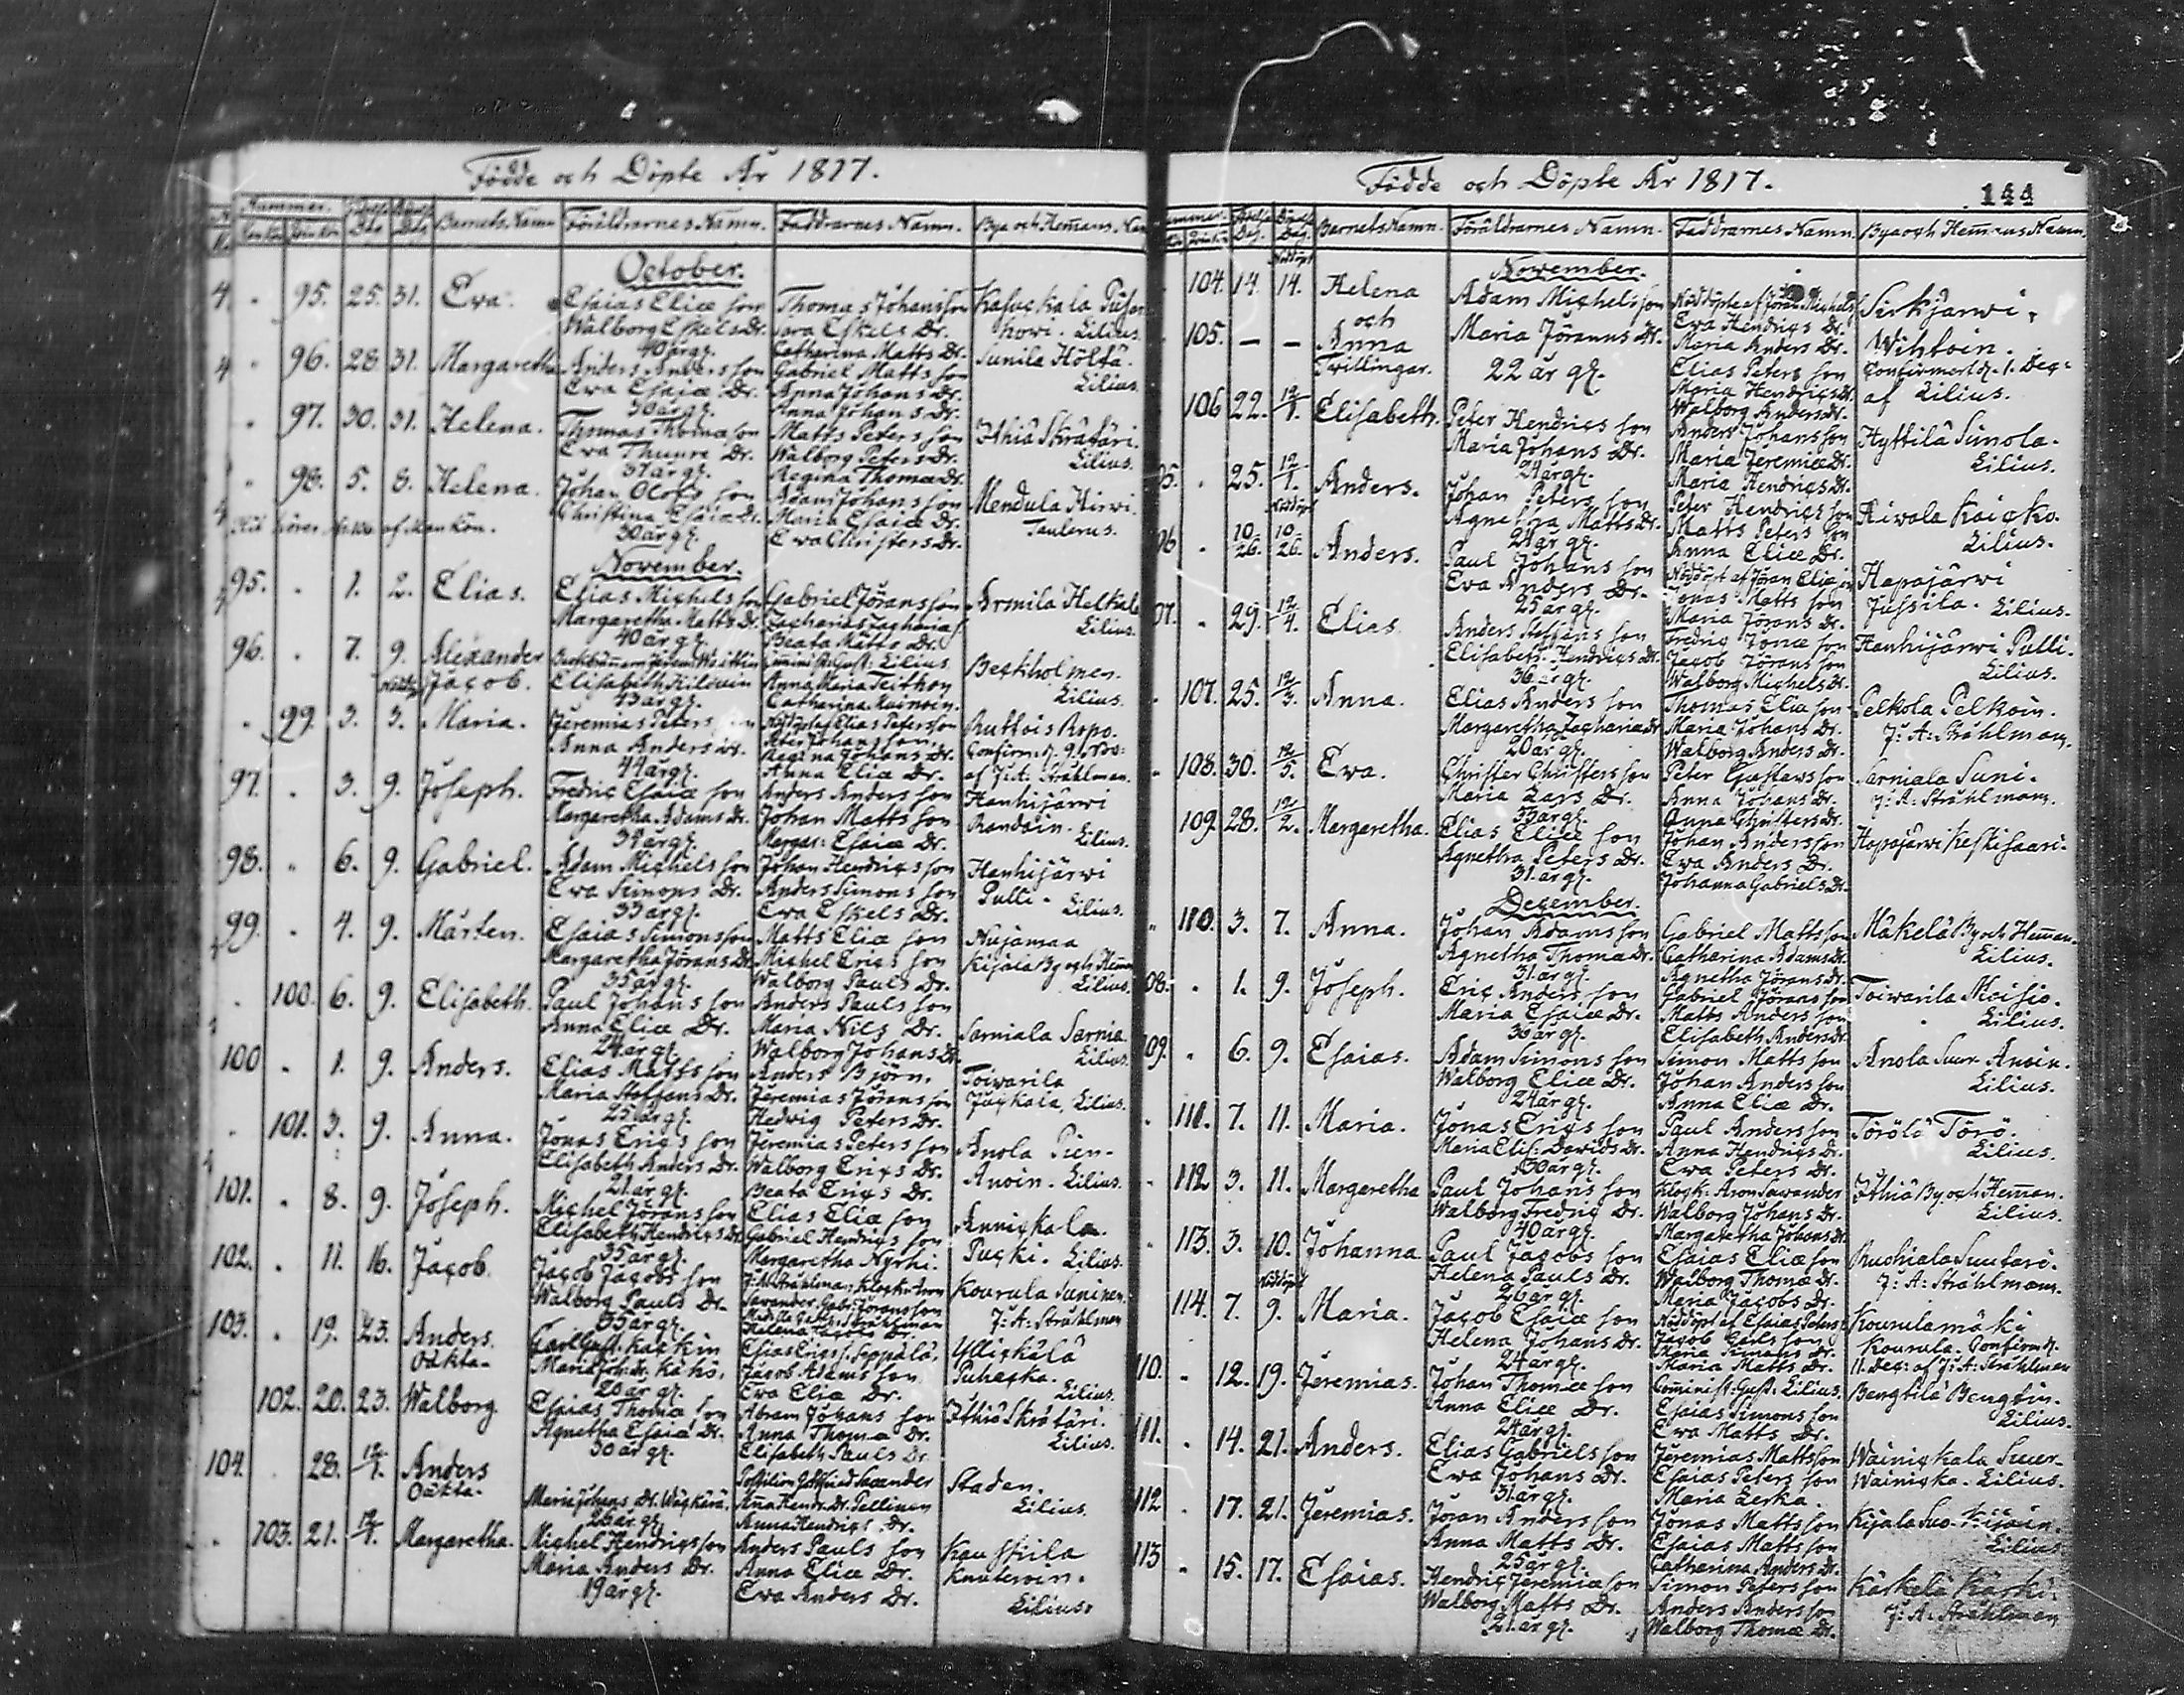 Födde och Döpte År 1817.
Nummer. Barnets Namn Föräldrarnes Namn. Faddrarnes Namn. Bya och Hemans Nam
October.
95. 25. 31. Eva. Esaias Eliæ son Thomas Johansson Kasuckala
Walborg Eskels Dr. Sara Eskels Dr. howi. Lilius.
40 år gl. Catharina Matts Dr.
96. 28. 31. Margaretha Anders Anders son Gabriel Matts son Sunila Höltä.
Ewa Esaiæ Dr. Anna Johans Dr. Lilius.
30 år gl. Anna Johans Dr.
97. 30. 31. Helena. Thomas Thomæ son Matts Peters son Ithiä Skrätäri.
Ewa Thuure Dr. Walborg Peters Dr. Lilius.
37 år gl. Regina Thomæ Dr.
98. 5. 8. Helena. Johan Olofs son Adam Johans son Mendula Hirwi.
Christina Esaiæ Dr. Maria Esaiæ Dr. Taulerus.
30 år gl. Ewa Christers Dr.
November.
95. 1. 2. Elias. Elias Michels son Gabriel Jörans son Armila Helkala
Margaretha Matts Dr. Zacharias Zacharias s. Lilius.
40 år gl. Beata Matts Dr.
96. 7. 9. Alexander Gust: Lilius Beckholmen.
Jacob. Elisabeth Kiloin Anna Maria Teithon Lilius.
43 år gl. Catharina
99. 3. 3. Maria. Jeremias Peters son Nöddöpt af Elias Petersson Ruttois Ropo.
Anna Anders Dr. Peter Johans son Confirm. d. 9. Nov:
44 år gl. Regina Johans Dr. af J: A: Stråhlman.
Anna Eliæ Dr.
97. 3. 9. Joseph. Fredric Esaiæ son Anders Anders son Hanhijärwi
Margaretha Adams Dr. Johan Matts son Randoin.
39 år gl. Margar: Esaiæ Dr. Lilius.
98. 6. 9. Gabriel. Adam Michels son Johan Hendrics son Hanhijärwi
Ewa Simons Dr. Anders Simons son Pulli. Lilius.
33 år gl. Ewa Eskels Dr.
99. 4. 9. Mårten. Esaias Simons son Matts Eliæ son Nuijamaa
Margaretha Jörans Dr. Michel Erics son Kijala By och Heman
35 år gl. Walborg Pauls Dr. Lilius.
100. 6. 9. Elisabeth. Paul Johans son Anders Pauls son
Anna Eliæ Dr. Maria Nils Dr. Sarniala Sarnia.
24 år gl. Walborg Johans Dr. Lilius.
100 1. 9. Anders. Elias Matts son Anders Björn. Toiwarila
Maria Staffans Dr. Jeremias Jörans son Juckala, Lilius.
25 år gl. Hedwig Peters Dr.
101. 3. 9. Anna. Jonas Erics son Jeremias Peters son Anola Pien-
Elisabeth Anders Dr. Walborg Erics Dr. Anoin. Lilius.
21 år gl. Beata Erics Dr.
101. 8. 9. Joseph. Michel Jörans son Elias Eliæ son Annickala.
Elisabeth Hendrics Dr. Gabriel Hendrics son Pucki. Lilius.
35 år gl. Margaretha Nyrhi.
102. 11. 16. Jacob. Jacob Jacobs son J: A: Stråhlman, Klock. Aron Kourula Suninen.
Walborg Pauls Dr. Sawander, Gabr: Jörans son J: A: Stråhlman
35 år gl. Helena Jacobs Dr.
103. 19. 23. Anders. Carl Gust. Kackin Esaias Erics s. Seppälä. Ylickälä
Oäkta. Maria Joh: dr. Kähö. Jacob Adams son Puhacka.
26 år gl. Ewa Eliæ Dr. Lilius.
102. 20. 23. Walborg Esaias Thomæ son Abram Johans son Ithiä Skrätäri.
Agnetha Esaiæ Dr. Anna Thomæ Dr. Lilius.
30 år gl. Elisabeth Pauls Dr.
104. 28. 12/7. Anders Staden.
Oäkta. Maria Johans Dr. Anna Hendr. Dr. Pellinen Lilius.
26 år gl. Anna Hendrics Dr.
103. 21. 12/7. Margaretha. Michel Hendrics son Anders Pauls son Kauskila
Maria Anders Dr. Anna Eliæ Dr. Knuteroin.
19 år gl. Ewa Anders Dr. Lilius.
Födde och Döpte År 1817.
144
Barnets Namn. Föräldrarnes Namn. Faddrarnes Namn. Bya och Hemans Namn.
November.
104. 14. 14. Helena Adam Michels son Nöddöpte af Jöran Michels Sirkjärwi,
och Ewa Hendrics Dr.
105. — — Anna Maria Jörans Dr. Maria Anders Dr. Wihtoin.
Twillingar. 22 år gl. Elias Peters son Confirmert d. 1. Dec:
Maria Hendrics Dr. af Lilius.
106 22. 12/7. Elisabeth. Peter Hendrics son Walborg Anders Dr.
Maria Johans Dr. Anders Johans son Hyttilä Sunola.
24 år gl. Maria Jeremiæ Dr. Lilius.
25. 12/7. Anders. Johan Peters son Maria Hendrics Dr.
Agnetha Matts Dr. Peter Hendrics son Raiwola Kaicko.
24 år gl. Matts Peters son Lilius.
10/26. 10/26. Anders. Paul Johans son Anna Eliæ Dr.
Eva Anders Dr. Nöddöpt af Jöran Eliæ son Hapajärwi
25 år gl. Jonas Matts son Jussila. Lilius.
29. 12/4. Elias. Anders Staffans son Maria Jörans Dr.
Elisabeth Hendrics Dr. Fredric Jonæ son Hanhijärwi Pulli.
36 år gl. Jacob Jörans son Lilius.
107. 25. 12/3. Anna. Elias Anders son Walborg Michels Dr.
Margaretha Zachariæ Dr. Thomas Eliæ son Pelkola Pelkoin.
20 år gl. Maria Johans Dr. J: A: Stråhlman.
Walborg Anders Dr.
108. 30. 12/5. Ewa. Christer Christers son Peter Gustaws son Sarniala Suni.
Maria Lars Dr. Anna Johans Dr. J: A: Stråhlmann.
33 år gl. Anna Christers Dr.
109. 28. 12/2. Margaretha. Elias Eliæ son Johan Anders son Hapajärwi Keskisaari.
Agnetha Peters Dr. Ewa Anders Dr.
31 år gl. Johanna Gabriels Dr.
December.
110. 3. 7. Anna. Johan Adams son Gabriel Matts son Mäkelä By och Heman.
Agnetha Thomæ Dr. Catharina Adams Dr. Lilius.
31 år gl. Agnetha Jörans Dr.
08. 1. 9. Joseph. Eric Anders son Gabriel Jörans son Toiwarila Moisio.
Maria Esaiæ Dr. Matts Anders son Lilius.
36 år gl. Elisabeth Anders Dr.
109. 6. 9. Esaias. Adam Simons son Simon Matts son Anola Suur Anoin.
Walborg Eliæ Dr. Johan Anders son Lilius.
24 år gl. Anna Eliæ Dr.
111. 7. 11. Maria. Jonas Erics son Paul Anders son Törölä Törö.
Maria Elis: Dawids Dr. Anna Hendrics Dr. Lilius.
30 år gl. Ewa Peters Dr.
112 3. 11. Margaretha Paul Johans son Klock: Aron Sawander Ithiä By och Heman.
Walborg Fredric Dr. Walborg Johans Dr. Lilius.
40 år gl. Margaretha Johans Dr.
113. 3. 10. Johanna Paul Jacobs son Esaias Eliæ son Ruohiala Suutari.
Helena Pauls Dr. Walborg Thomæ Dr. J: A: Stråhlmann.
26 år gl. Maria Jacobs Dr.
114. 7. 9. Maria. Jacob Esaiæ son Nöddöpt af Esaias Peters s. Kourulamäki
Helena Johans Dr. Jacob Carls son Kourula. Confirm. d.
24 år gl. Maria Simons Dr. 11. Dec: af J: A: Stråhlman
Maria Matts Dr.
110. 12. 19. Jeremias. Johan Thomæ son Cominist: Gust: Lilius. Bengtilä Bengtin.
Anna Eliæ Dr. Esaias Simons son Lilius.
24 år gl. Ewa Matts Dr.
111. 14. 21. Anders. Elias Gabriels son Jeremias Matts son Wainickala Suur-
Ewa Johans Dr. Esaias Peters son Wainicka. Lilius.
31 år gl. Maria Lerka.
112 17. 21. Jeremias. Jöran Anders son Jonas Matts son Kijala Suo-Kijain.
Anna Matts Dr. Esaias Matts son Lilius
25 år gl. Catharina Anders Dr.
113 15. 17. Esaias. Hendric Jeremiæ son Simon Peters son Kärkelä Kärki.
Walborg Matts Dr. Anders Anders son J: A: Stråhlman
21 år gl. Walborg Thomæ Dr.